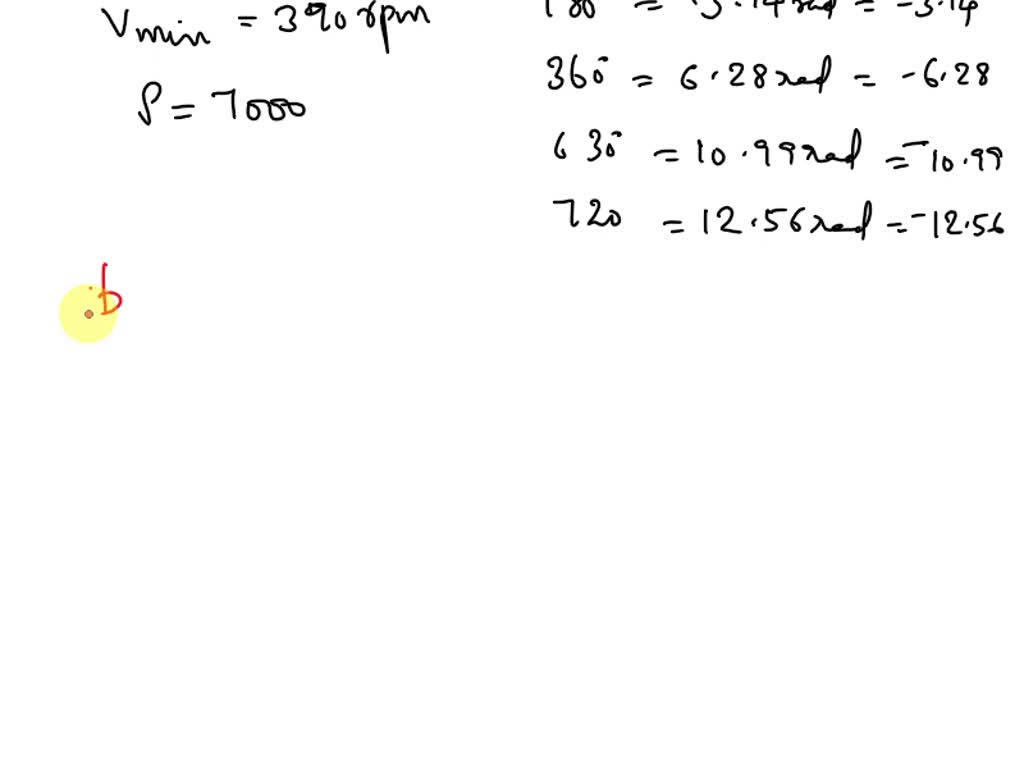 Vmin = 390 rpm
ρ = 7000
180° = 3.14 rad = -3.14
360° = 6.28 rad = -6.28
630° = 10.99 rad = -10.99
720 = 12.56 rad = -12.56
b